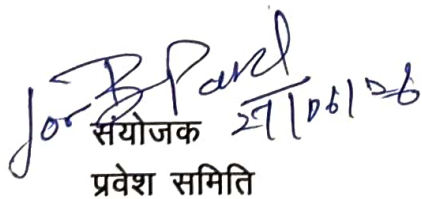 for
27/06/26
संयोजक
प्रवेश समिति